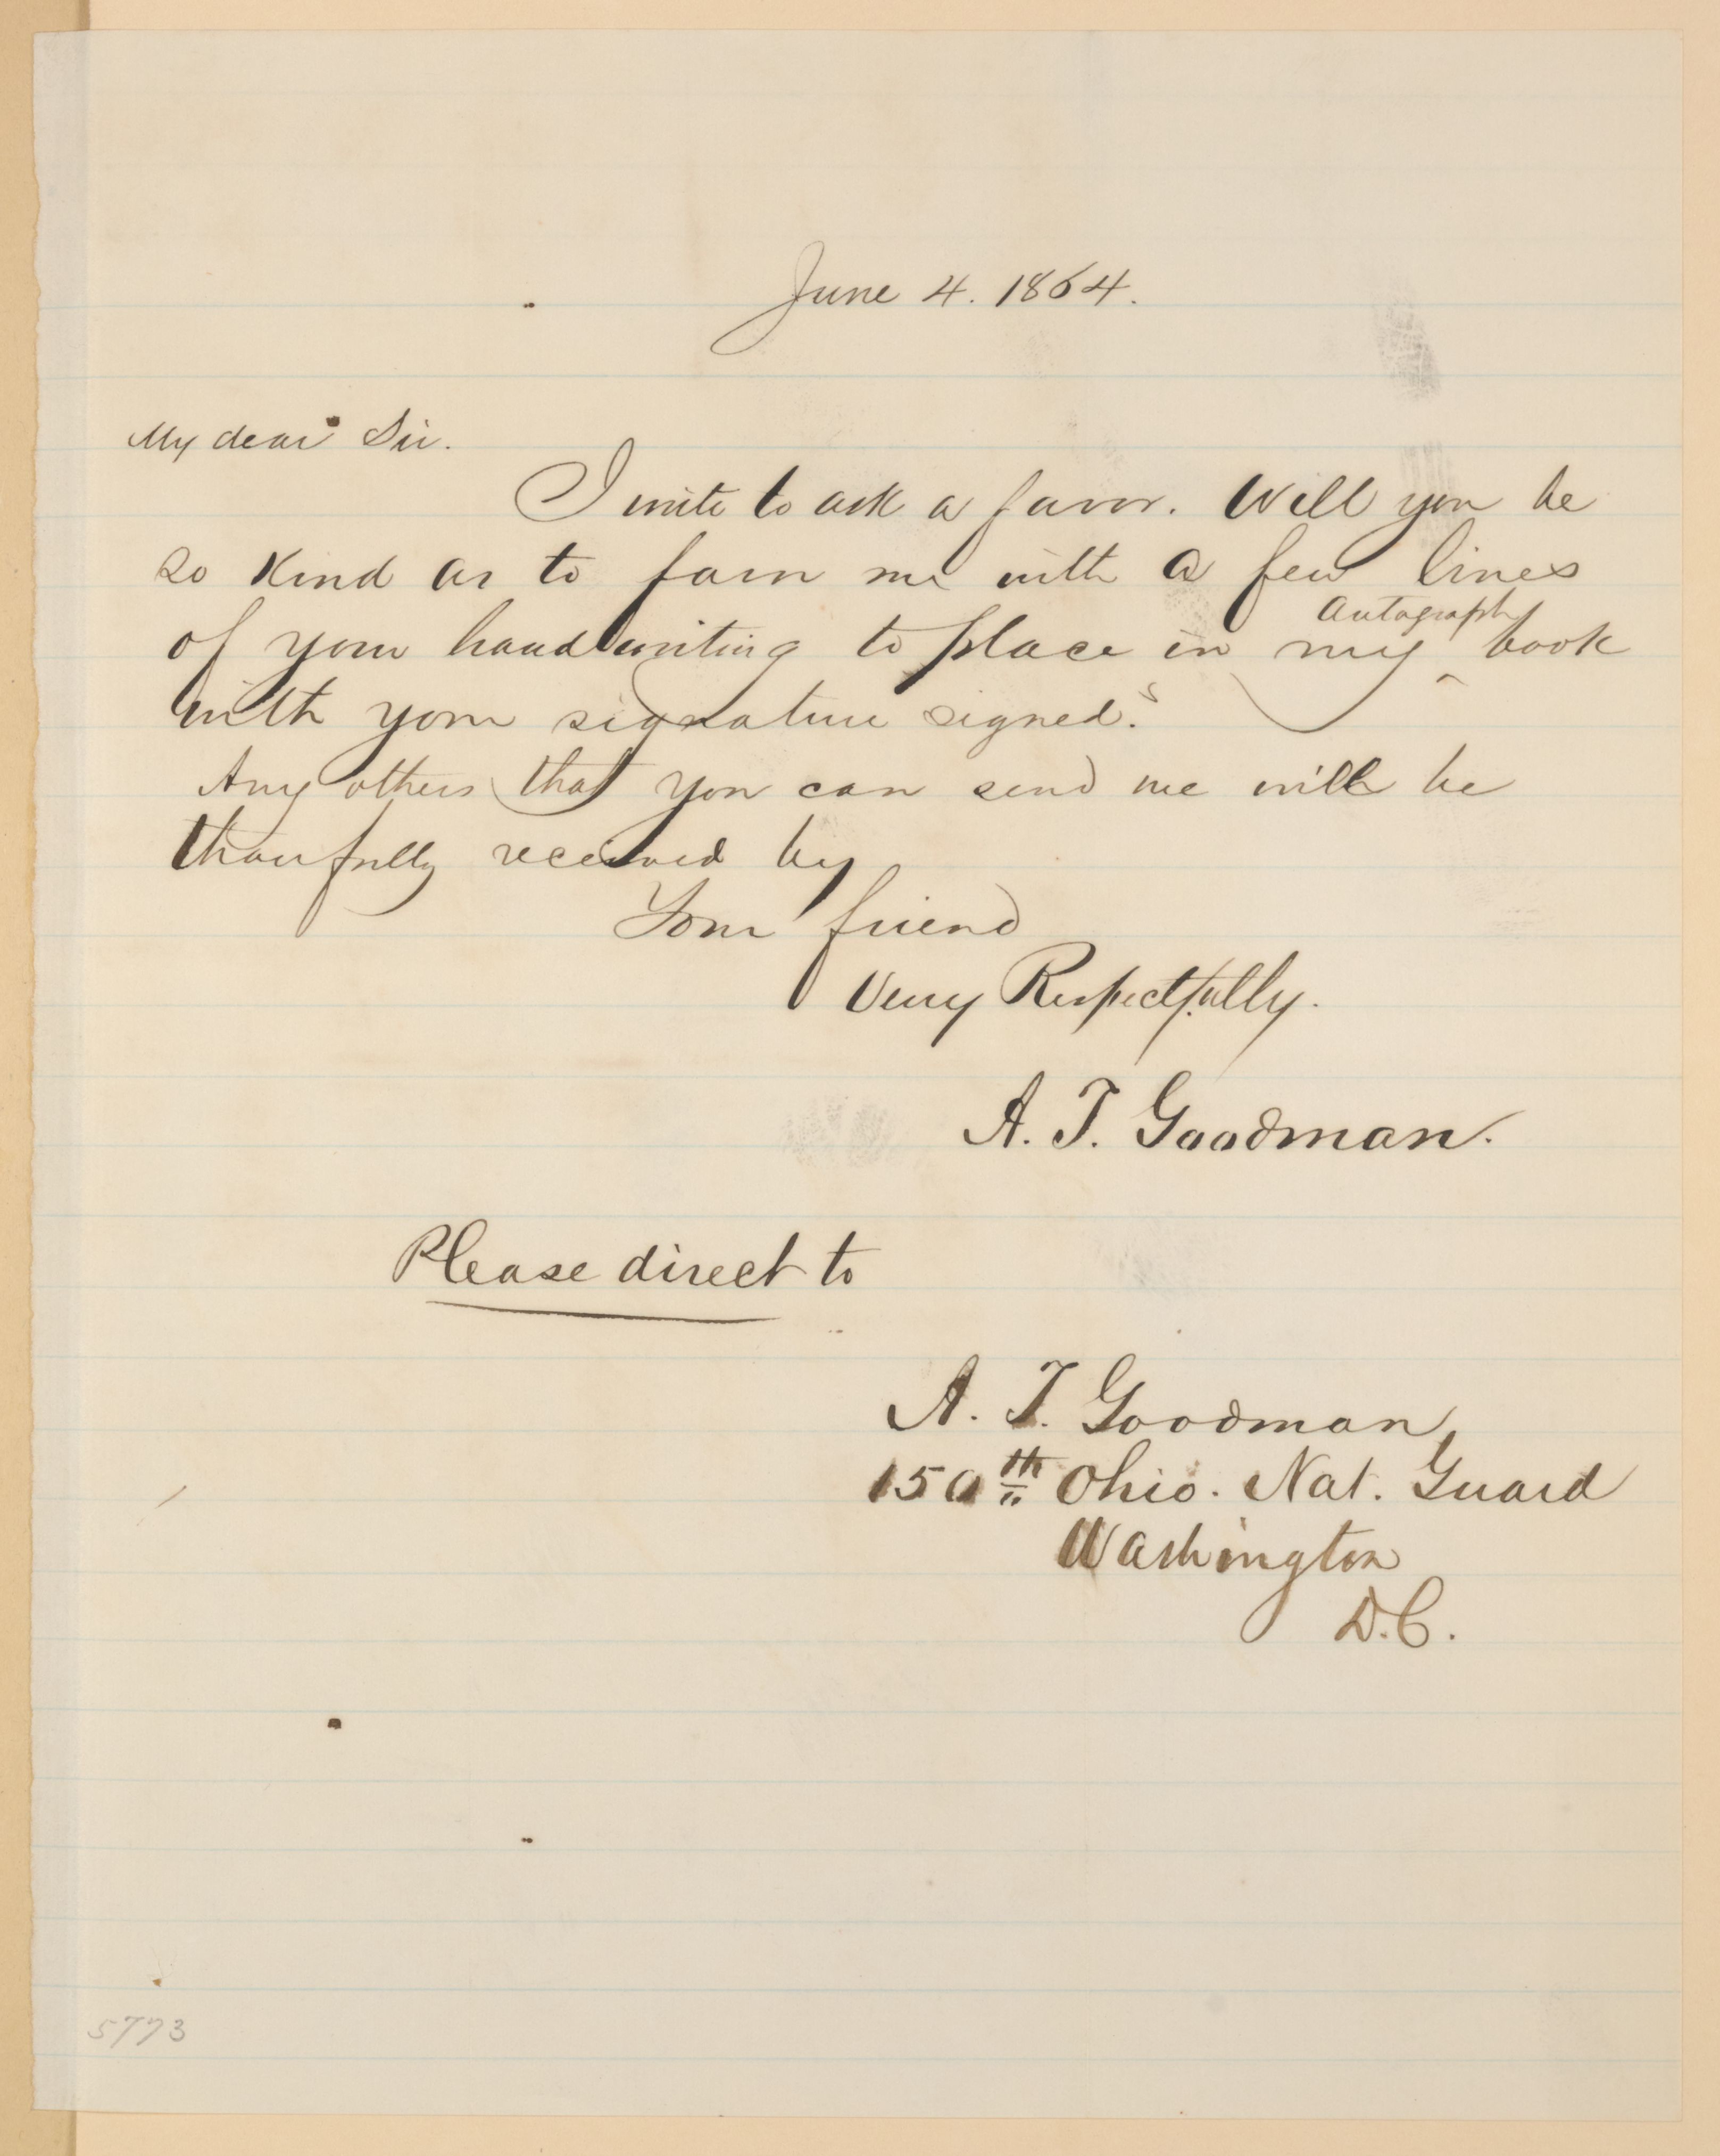 June 4. 1864.
My dear Sir.
I write to ask a favor. Will you be
so kind as to favor me with a few lines
of your handwriting to place in my Autograph book
with your signature signed.
Any others that you can send me will be
thankfully received by
Your friend
Very Respectfully.
A. T. Goodman.
Please direct to
A. T. Goodman,
150th Ohio. Nat. Guard
Washington
D.C.
5773